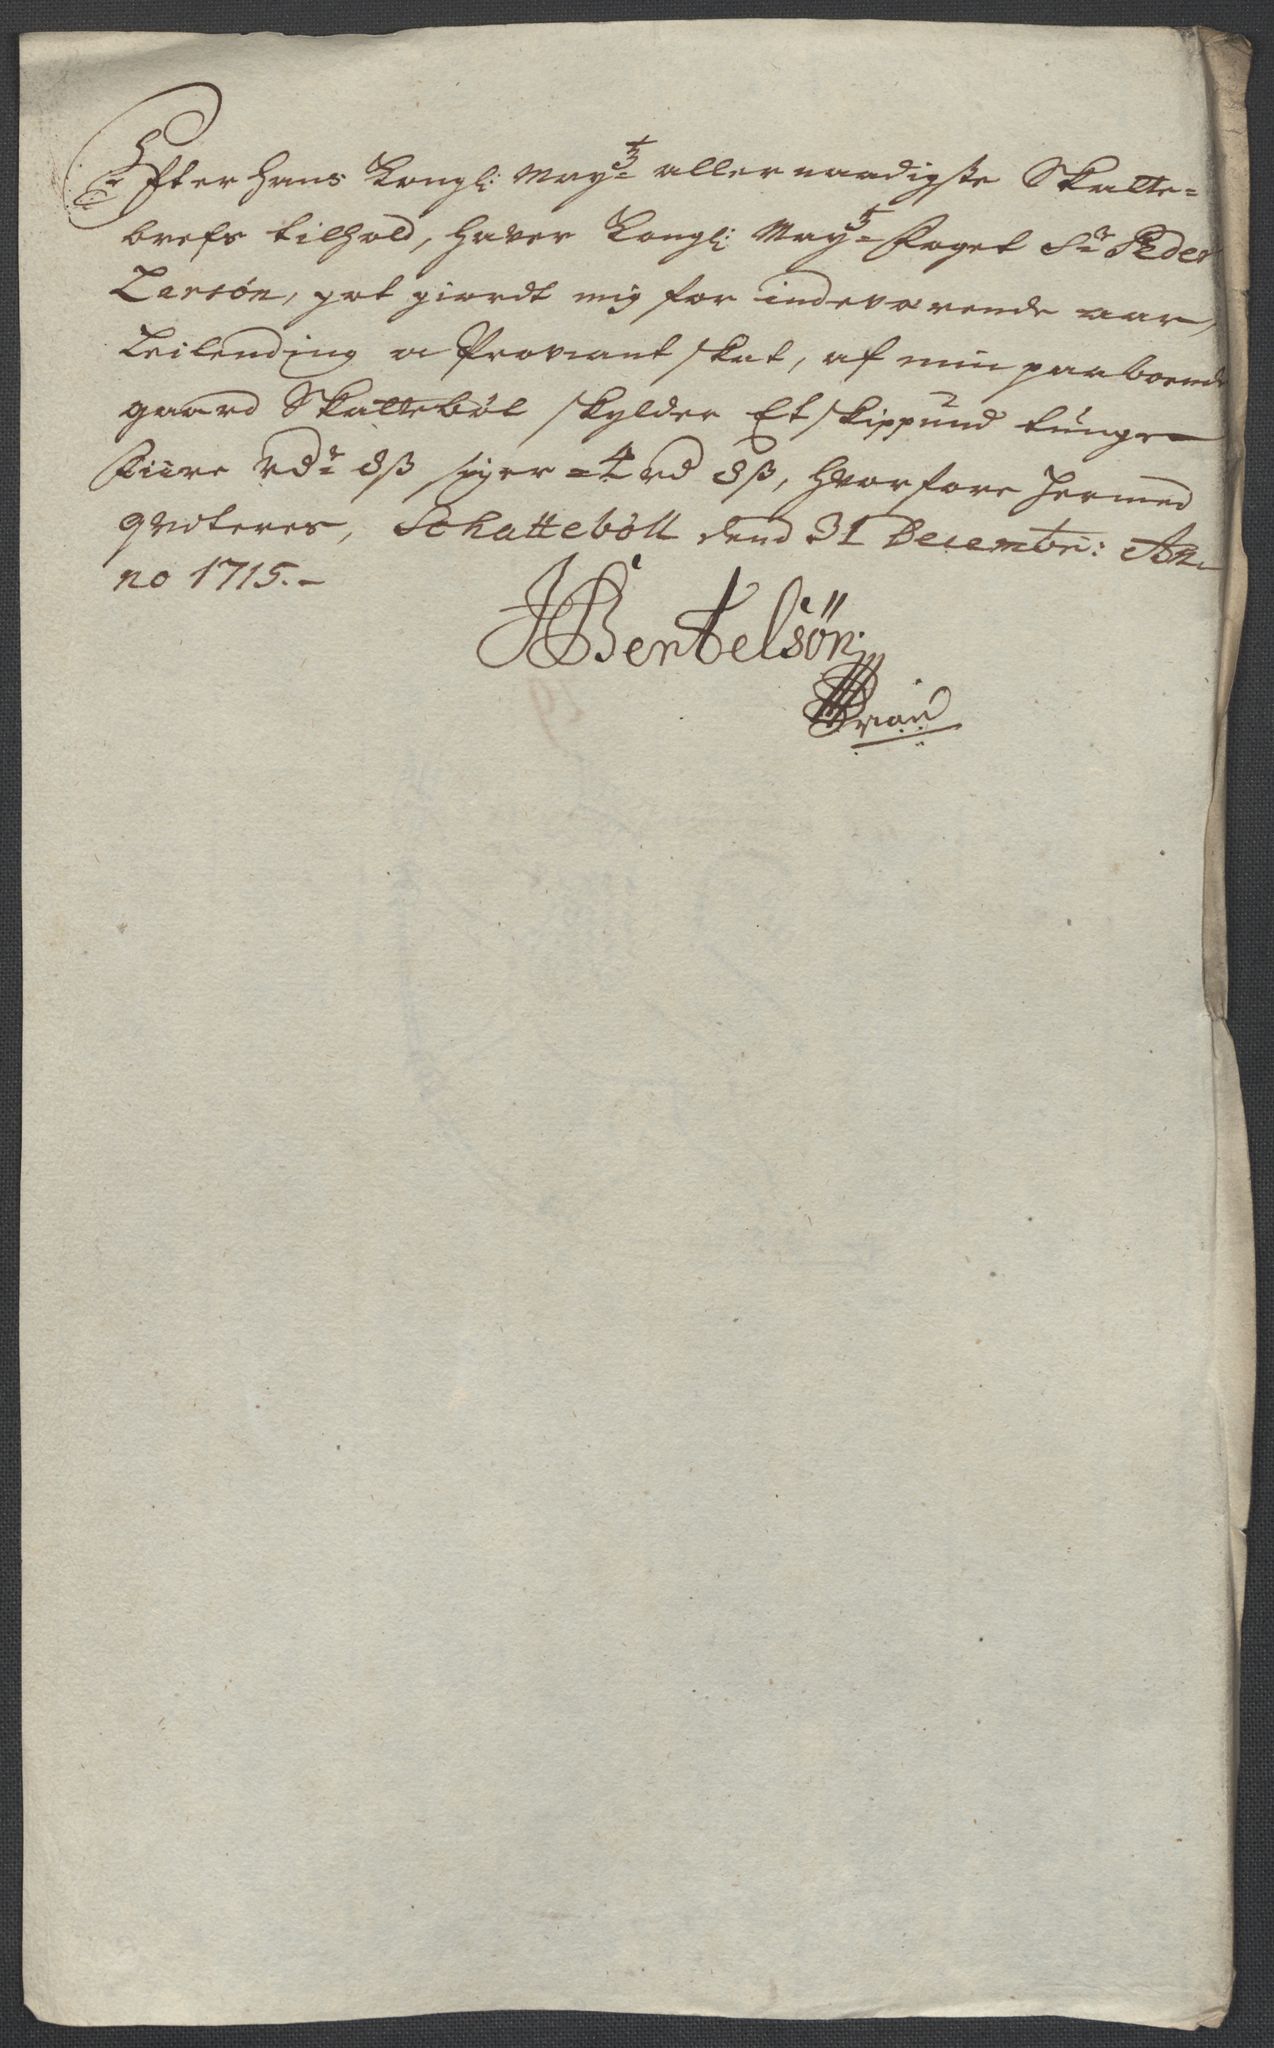 Efter hans Kongl: May:ts allernaadigste Skatte=
brefs tilhold, haver Kongl: May:ts Foget Sr Peder
Larsøn, got giordt mig for indeværende aar,
Leilending og Proviant skat, af min paaboende
gaard Skattebøl skylder Et skippund tunge
Fiire rdr 8ß siger =4 rd 8ß, hvorfore hermed
qvoteres, Schattebøll dend 31 Decembr: An-
no 1715.-
JBentelsøn: